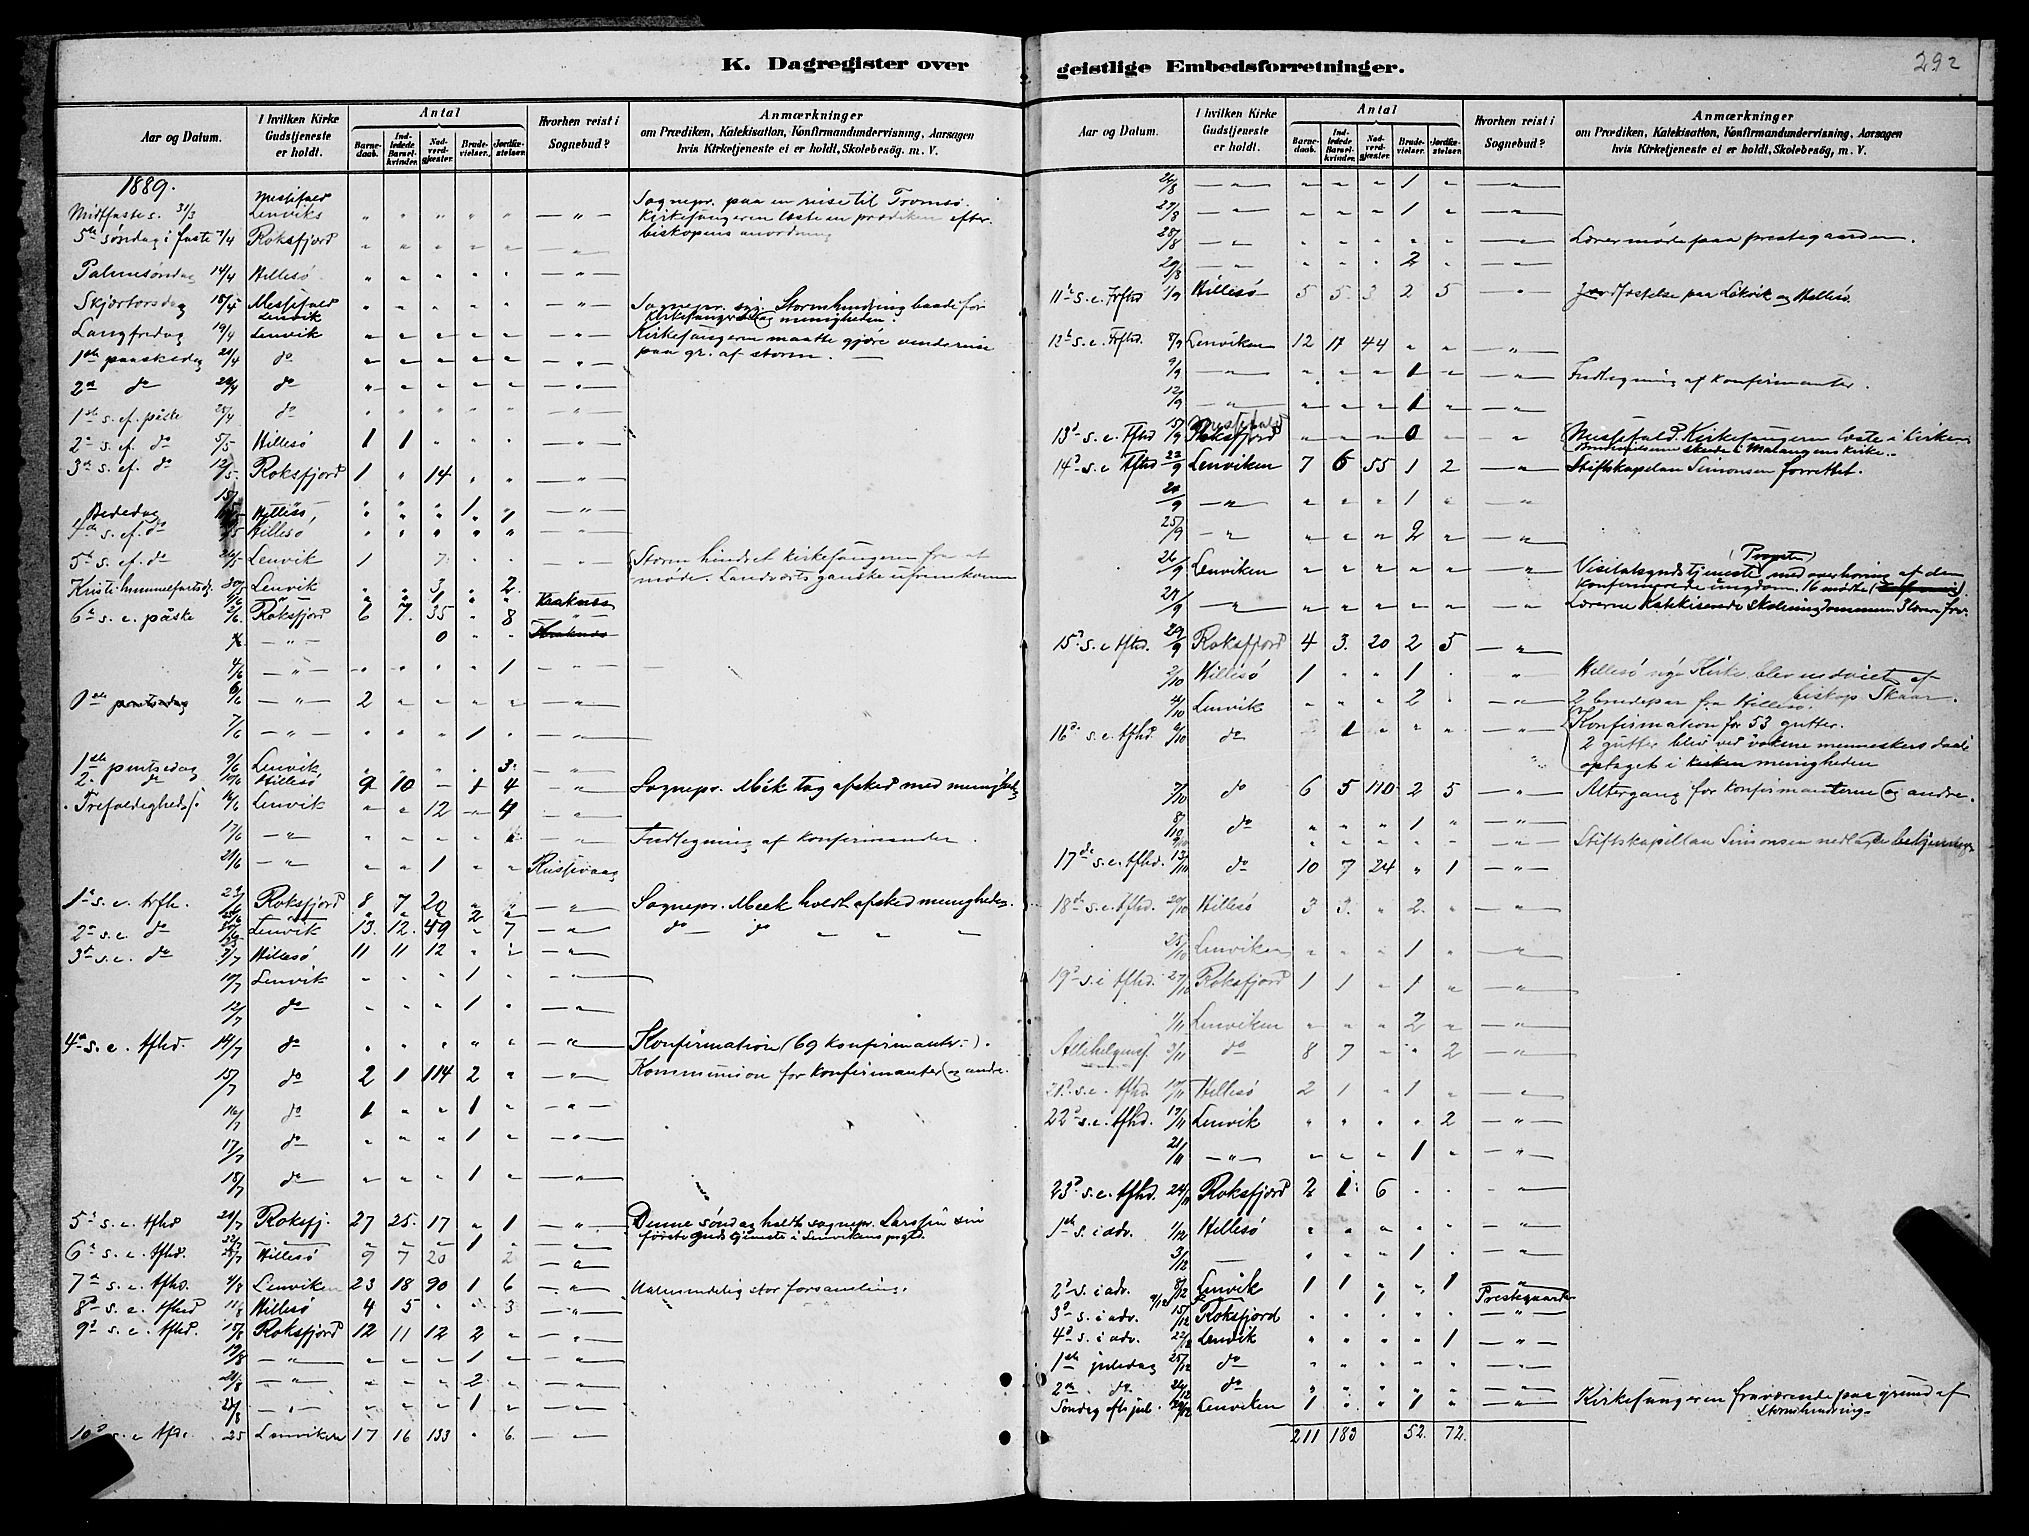 K. Dagregister over geistlige Embedsforretninger.
292
Aar og Datum. | I hvilken Kirke Gudstjeneste er holdt. | Antal | Barnedaab. | Indledede Barnekvinder. | Nadverdgjæster. | Brudevielser. | Jordfæstelser. | Hvorhen reist i Sognebud? | Anmærkninger om Prædiken, Katekisation, Konfirmandundervisning, Aarsagen hvis Kirketjeneste ei er holdt, Skolebesög. m. V.
1889.
Midtfastes. 31/3 Messefald Lenviks " " " " " — " — Sognepr. paa en reise til Tromsø. Kirkesangeren læste en prædiken efter biskopens anordning
5te søndag i faste 7/4 Roksfjord " " " " " "
Palmesøndag 14/4 Hillesö " " " " " — " —
Skjærtorsdag 18/4 Messefald Lenvik " " " " " — " — Sognepr. syg. Stormhindring baade for kirkesanger og menigheden.
Langfredag 19/4 Lenvik " " " " " — " — Kirkesangeren maatte gjöre vendereise paa gr. af storm.
1ste paaskedag 21/4 do " " " " " — " —
2n do 22/4 do " " " " " — " —
1ste s. ef. påske 28/4 do " " " " " — " —
2n s. ef. do 5/5 Hillesö 1 1 " " " — " —
3n s. ef. do 12/5 Roksfjord 1 " 14 " " — " —
Bededag Hillesö, " " " 1 " — " —
4de s. ef. do Hillesö " " " " 1
5te s. ef. do 26/5 Lenvik 1 " 7 " " — " — Storm hindret kirkesangeren fra at møde. Landværts ganske ufremkommelig
Kristi himmelfartsdg. 30/5 Lenvik " " 3 " 2
6te s. e. påske 2/6 Roksfjord 6 7 35 " 8
4/6 — " — " " " " 1 — " —
6/6 — " — 2 " " " " — " —
7/6 — " — " " " 1 " — " —
1ste pintsedag 9/6 Lenvik " " " " 3 — " —
2. do 10/6 Hillesö 9 10 — 1 4 — " — Sognepr. Mek tog afsked med menigheden
Trefoldigheds s. 16/6 Lenvik " " 12 " 4 — " —
17/6 — " — " " " " " — " — Indlegning af konfirmander.
21/6 — " — " " 1 " " Russevaag
1s. e. trfh. 23/6 Roksfjord 8 7 20 " " — " — Sognepr. Meek holdt afsked menigheden.
2n s. e. do 30/6 Lenvik 13. 12. 49 " 7 — " — do — do — " — "
3d s. e. do 7/7 Hillesö 11 11 12 " " — " —
10/7 Lenvik " " " 1 " — " —
12/7 do " " " 1 " — " —
4d s. e. tfhd. 14/7 do " " " " " — " — Konfirmation (69 konfirmanter).
15/7 do 2 1 114 2 " — " — Kommunion for konfirmanter og andre.
16/7 do 1 " " 1 " — " —
17/7 do " " " 1 " — " —
18/7 do " " " 1 " — " —
5t s. e. tfhd 21/7 Roksfj. 27 25. 17 " 1 — " — Denne søndag holdt sognepr. Larssen sin förste gudstjeneste i Lenvikens prgld.
6t s. e. tfhd. 28/7 Hillesö 9 7 20 " 2 — " —
7d s. e. tfhd. 4/8 Lenviken 23 18 90 1 6 — " — Ualmindelig stor forsamling.
8d s. e. tfhed 11/8 Hillesö 4 5 " " 3 — " —
9d s. e. tfhd. 18/8 Roksfjord 12 11 12 2 " — " —
19/8 — " — " " " 1 " — " —
21/8 — " — " " " 2 " — " —
— " — " " " 1 " — " —
10d s. e. tfh. 25 Lenviken 17 16 133 " 6 — " —
Aar og Datum. | I hvilken Kirke Gudstjeneste er holdt. | Antal | Barnedaab. | Indledede Barnekvinder. | Nadverdgjæster. | Brudevielser. | Jordfæstelser. | Hvorhen reist i Sognebud? | Anmærkninger om Prædiken, Katekisation, Konfirmandundervisning, Aarsagen hvis Kirketjeneste ei er holdt, Skolebesög, m. V.
26/8 — " — " " " 1 " — " —
27/8 — " — " " " 1 " — " —
28/8 — " — " " " " " — " — Lærermøde paa prestegaarden.
29/8 — " — " " " 2 " — " —
11te s. e. trfhd 1/9 Hillesö 5 5 3 2 5 " Jordfæstelse paa Løkvik og Hillesø.
12te s. e. trfhd. 8/9 Lenviken 12 17 44 " " — " —
9/9 — " — " " " 1 " — " — Indlegning af konfirmanter.
12/9 — " — " " " 1 " — " —
13d s. e. tfhd 15/9 Messefald Roksfjord " " " 0 " " Messefald. Kirkesangeren læste i kirken. Brudevielserne skede i Malangens kirke.
14d s. e tfhd 22/9 Lenviken 7 6 55 1 2 — " — Stiftskapelan Simonsen forrettet.
— " — " " " 1 " — " —
25/9 — " — " " " 2 " — " —
26/9 Lenviken " " " " " — " — Visitatsgudstjeneste (Propsten) med overhøring af den konfirmerede ungdom. 16 mødte
27/9 — " — " " " " " — " — Lærerne katekiserede skoleungdommen.
15d s. e tfhd. 29/9 Roksfjord 4 3. 20 2 5 — " —
2/10 Hillesö 1 " " 1 " " Hillesö nye Kirke blev indviet af biskop Skaar.
4/10 Lenvik " " " 2 " — " — 2 brudepar fra Hillesö.
16d s. e. tfhd. 6/10 do 1 " " " — " — Konfirmation for 53 gutter. 2 gutter blev ved voksne menneskers daab optaget i menigheden
7/10 do 6 5 110 2 5 — " — Altergang for konfirmanterne og andre.
8/10 do " " " 1 " — " —
Stiftskapellan Simonsen nedlagde betjeningen
17de s. e. tfhd. 13/10 do 10 7 24 " 1 — " —
18de s. e. tfhd. 20/10 Hillesö 3 3. " 2. " — " —
25/10 Lenviken " " " 1 " — " —
19d s. e tfhd. 27/10 Roksfjord 1 1 " 1 " — " —
1/11 Lenviken " " " 2 " — " —
Allehelgensf. 3/11 do 8 7 " " 2 — " —
21d s. e. tfhd. Hillesö 2 1 " 1 " — " —
22d s. e. tfhd. 17/11 Lenvik " " " " 2 — " —
21/11 — " — " " " 1 " — " —
23d s. e. tfhd. 24/11 Roksfjord 2 1 6 " " — " —
1ste s. i adv. 1/12 Hillesö " " " " " — " —
3/12 — " — " " " 1 " — " —
2d s. i adv. 8/12 Lenvik 1 1 " " 1 "
9/12 1 Prestegaarden
3d s. i adv. 15/12 Roksfjord " " " " " — " —
4d s. i adv. 22/12 Lenvik " " " " 1 — " —
1ste juledag 25/12 do " " " " " — " —
2n do. 26/12 do " " " " " — " —
Søndag eft. jul. 29/12 Lenviken 1 " " 1 " — " — Kirkesangeren fraværende paa grund af stormhindring.
211 183 52. 72.